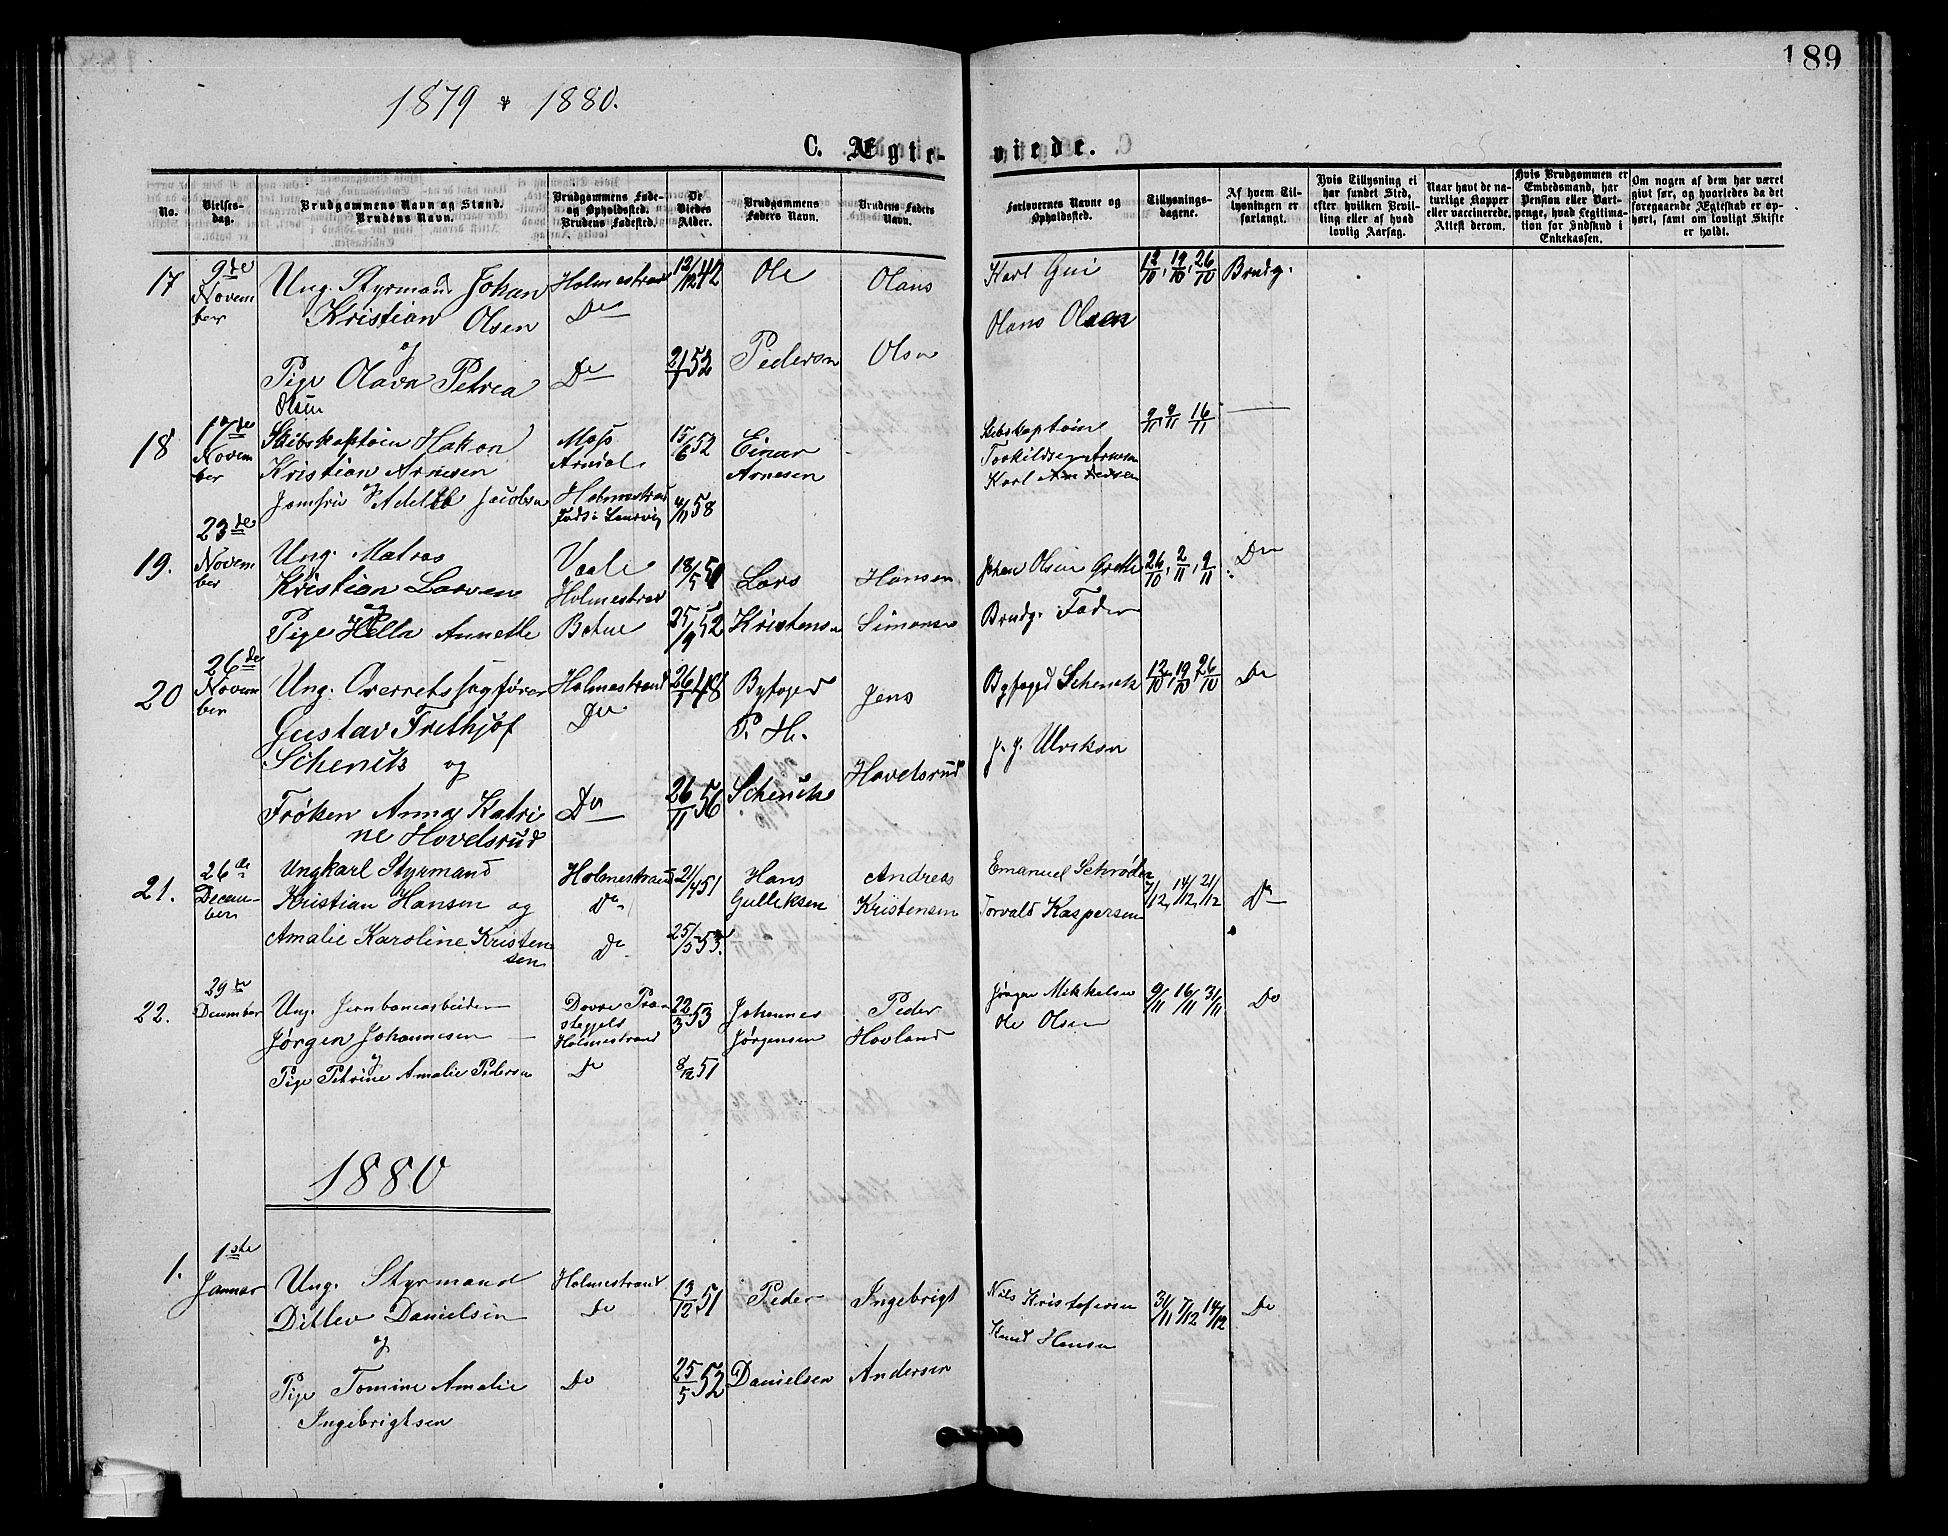 189
1879 & 1880.
C. Ægte-
viede.
No.
Vielses-
dag.
Brudgommens Navn og Stand.
Brudens Navn.
Brudgommens Føde-
og Opholdssted.
Brudens Fødested.
De
Viedes
Alder.
Brudgommens
Faders Navn.
Brudens Faders
Navn.
Forlovernes Navne og
Opholdssted.
Tillysnings-
dagene.
Af hvem Til-
lysningen er
forlangt.
Hvis Tillysning ei
har fundet Sted,
efter hvilken Bevil-
ling eller af hvad
lovlig Aarsag.
Naar havt de na-
turlige Kopper
eller vaccinerede.
Attest derom.
Hvis Brudgommen er
Embedsmand, har
Pension eller Vart-
penge, hvad Legitima-
tion for Indskud i
Enkekassen.
Om nogen af dem har været
givt før, og hvorledes da det
foregaaende Ægteskab er op-
hørt, samt om lovligt Skifte
er holdt.
17
9de
Novem
ber
Ung. Styrmand Johan
Kristian Olsen
og
Pige Olava Petrea
Olsen
Holmestrand
Do
Do
12/12 42
2/7 52
Ole
Pedersen
Olaus
Olsen
Karl
Olaus Olsen
12/10, 19/10, 26/10
Brudg.
18
17de
Novem
ber
Skibskaptein Hakon
Kristian Arnesen
Jomfru Jacobsen
Moss
Arendal
Holmestrand
Født i Laurvig
15/6 52
4/11 58
Einar
Arnesen
Skibskaptein
Arnesen
Karl Andersen
2/11, 9/11 16/11
19.
23de
Novem
ber
Ung. Matros
Kristian Larsen
og
Pige Annette
Vaale
Holmestrand
Botne
18/5 51
25/9 52
Lars
Kristensen
Hansen
Simonsen
Johan Olsen
Brudg. Fader
26/10, 2/11, 9/11
Do
20
26de
Novem
ber
Ung. Overretssagfører
Gustav Frithjof
Schenck og
Frøken Anna Katri
ne Hovelsrud
Holmestrand
Do
Do
26/1 48
26/11 56
Byfoged
P. H.
Schenck
Jens
Hovelsrud
Byfoged Schenck
J. J. Ulriksen
12/10, 19/10, 26/10
Do
21.
26de
Decem-
ber
Ungkarl Styrmand
Kristian Hansen og
Amalie Karoline Kristen
sen
Holmestrand
Do
Do
21/4 51
25/5 53.
Hans
Gulliksen
Andreas
Kristensen
Emanuel Schrøder
Torvald Kaspersen
7/12, 14/12, 21/12
Do
22.
29de
December
Ung. Jernbanearbeider
Jørgen Johannesen
og
Pige Petrine Amalie Pedersen
Dovre Præ
stegjeld
Holmestrand
Do
22/3 53
8/12 51
Johannes
Jørgensen
Peder
Hovland
Jørgen Mikkelsen
Ole Olsen
9/11 16/11 31/11
Do
1880
1.
1ste
Januar
Ung. Styrmand
Ditlev Danielsen
og
Pige Tomine Amalie
Ingebrigtsen
Holmestrand
Do
Do
13/12 51
25/5 52
Peder
Danielsen
Ingebrigt
Andersen
Nils Kristofersen
Knud Hansen
31/11 7/12 14/12
Do